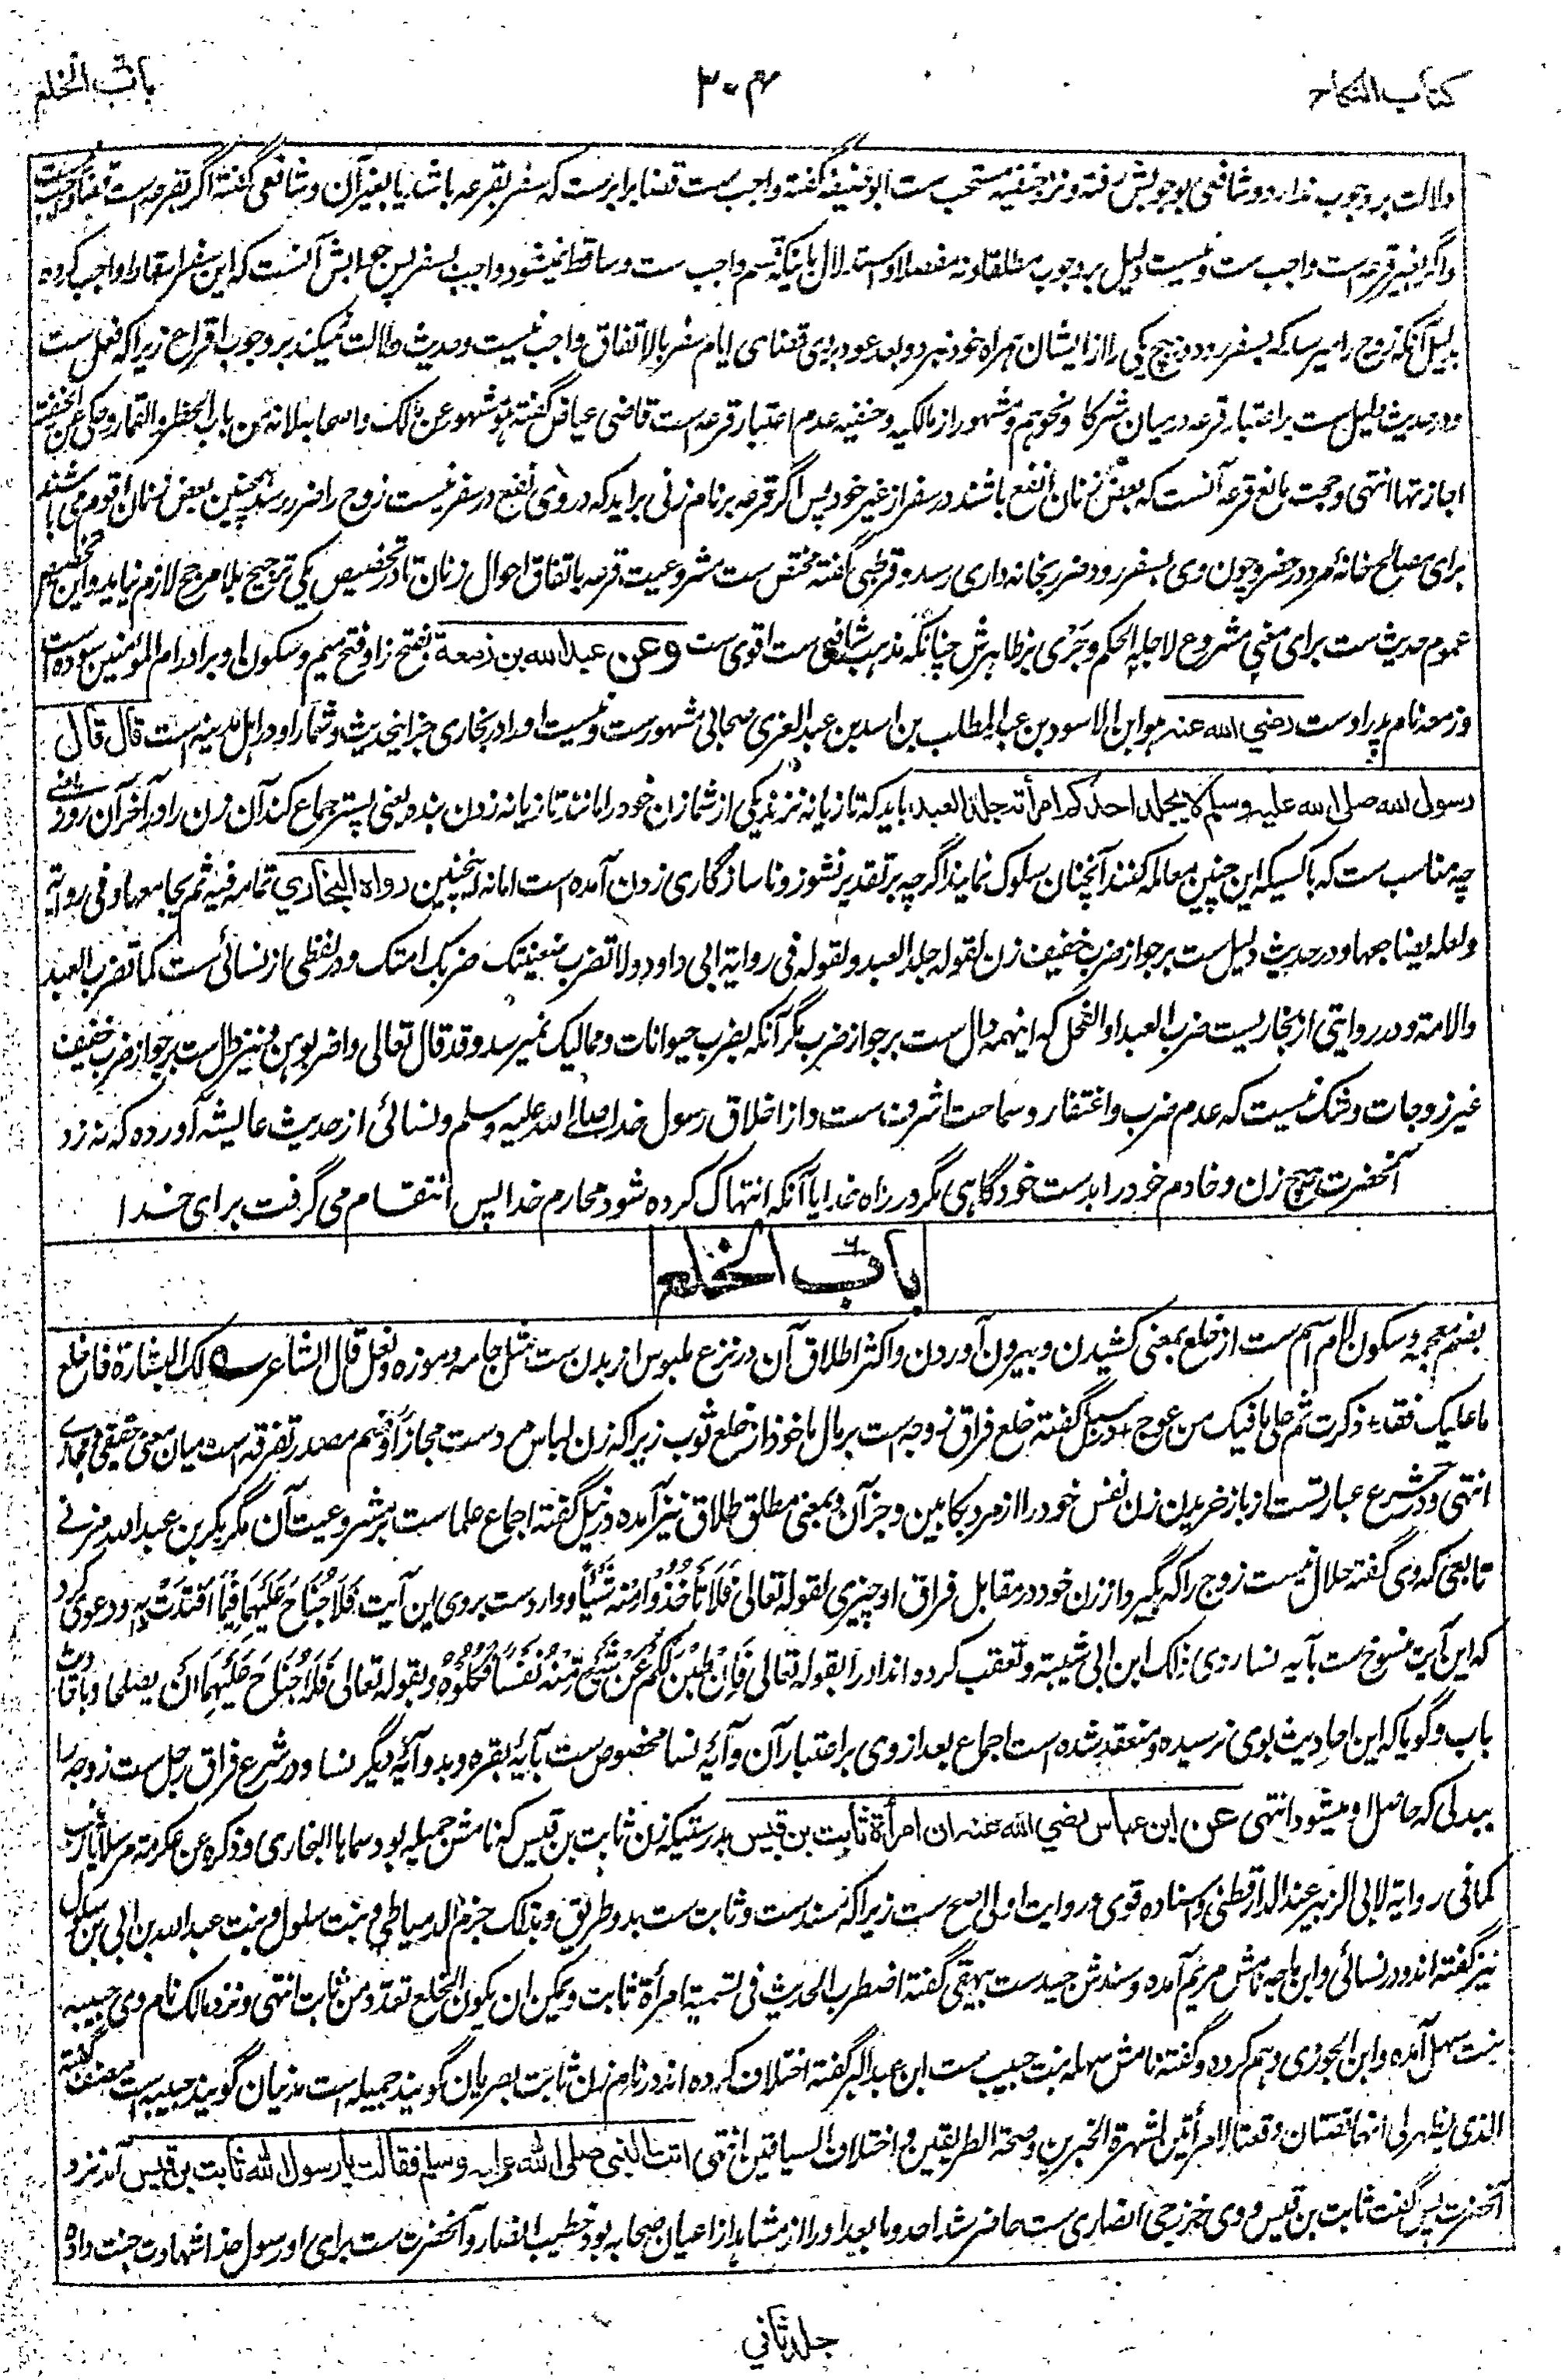 کتاب النکاح
۳۰۴
باب الخلع
دلالت بر وجوب ندارد و شافعی بوجوبش رفته و نزد حنفیه مستحب ست ابو حنیفه گفته واجب ست قضا برابرست که سفر بقرعه باشد یا بغیر آن و شافعی گفته اگر بقرعه است قضا واجب نیست
واگر بغیر قرعه است واجب ست و نیست دلیل بر وجوب مطلقا و نه مفصلا و استدلال باینکه قسم واجب ست و ساقط نمیشود واجب بسفر پس جوابش آنست که این سفر اسقاط واجب کرده
بدلیل آنکه زوج را میرسد که بسفر رود و هیچ یکی را از ایشان همراه خود نبرد و بعد عود بروی قضای ایام سفر بالاتفاق واجب نیست و حدیث دلالت نمیکند بر وجوب اقراع زیرا که فعل ست
و در حدیث دلیل ست بر اعتبار قرعه درمیان شرکا و نحوهم و مشهور از مالکیه و حنفیه عدم اعتبار قرعه است قاضی عیاض گفته هو مشهور عن مالک و اصحابه لانه من باب الخطر والقمار وحکی عن الحنفیة
اجازتها انتهی و حجت مانع قرعه آنست که بعض زنان انفع باشند در سفر از غیر خود پس اگر قرعه بر نام زنی براید که در وی نفع در سفر نیست زوج را ضرر رسد همچنین بعض زنان اقوم می باشند
برای مصالح خانه مرد در حضر و چون وی بسفر رود ضرر بخانه داری رسد و قرطبی گفته مختص ست مشروعیت قرعه باتفاق احوال زنان تا در تخصیص یکی ترجیح بلا مرجح لازم نیاید و این تخصیص
عموم حدیث ست برای معنی مشروع لاجله الحکم و جری بر ظاهرش چنانکه مذهب شافعی ست اقوی ست وعن عبدالله بن زمعة بفتح زا و فتح میم و سکون او برادر ام المؤمنین سوده است
و زمعه نام پدر اوست رضي الله عنه هو ابن الاسود بن عبدالمطلب بن اسد بن عبدالعزی صحابی مشهورست و نیست او را در بخاری جز اینحدیث و شمار او در اهل مدینه است قال قال
رسول الله صلی الله علیه وسلم لا یجلد احدکم امرأته جلد العبد باید که تازیانه نزند یکی از شما زن خود را مانند تازیانه زدن بنده یعنی پستر جماع کند آن زن را در آخر آن روز یعنی
چه مناسب ست که با کسیکه این چنین معامله کنند آنچنان سلوک نمایند اگرچه بر تقدیر نشوز و ناسازگاری زدن آمده است اما نه اینچنین رواه البخاري تمامه فیه ثم یجامعها و فی روایة
ولعله یضاجعها و در حدیث دلیل ست بر جواز ضرب خفیف زن لقوله جلد العبد و لقوله فی روایة ابی داود ولا تضرب ضعینتک ضربک امتک و در لفظی از نسائی ست کما تضرب العبد
والامة و در روایتی از بخاریست ضرب العبد او الفحل که اینهمه دال ست بر جواز ضرب مگر آنکه بضرب حیوانات و ممالیک نمیرسد و قد قال تعالی واضربوهن و نیز دال ست بر جواز ضرب خفیف
غیر زوجات و شک نیست که عدم ضرب و اغتفار و سماحت اشرف ست و از اخلاق رسول خداست صلی الله علیه وسلم و نسائی از حدیث عایشه آورده که نه زد
آنحضرت هیچ زن و خادم خود را بدست خود گاهی مگر در راه خدا یا آنکه انتهاک کرده شود محارم خدا پس انتقام می گرفت برای خدا
باب الخلع
بضم معجمه و سکون لام اسم ست از خلع بمعنی کشیدن و بیرون آوردن و اکثر اطلاق آن در نزع ملبوس از بدن ست مثل جامه و موزه و نعل قال الشاعر لک البشارة فاخلع
ما علیک فقد ذکرت ثم علی ما فیک من عوج و در سبل گفته خلع فراق زوجه است بر مال ماخوذ از خلع ثوب زیرا که زن لباس مرد ست مجازا و ضم مصدر تفرقه است میان معنی حقیقی و مجازی
انتهی و در شرع عبارتست از باز خریدن زن نفس خود را از مرد بکابین و جز آن و بمعنی مطلق طلاق نیز آمده در نیل گفته اجماع علما ست بر مشروعیت آن مگر بکر بن عبدالله مزنی
تابعی که وی گفته حلال نیست زوج را که بگیرد از زن خود در مقابل فراق او چیزی لقوله تعالی فَلَا تَأْخُذُوْا مِنْهُ شَيْئًا و وارد ست بر وی این آیت فَلَا جُنَاحَ عَلَيْهِمَا فِيْمَا افْتَدَتْ بِهِ و دعوی کرد
که این آیت منسوخ ست بآیه نسا روی ذلک ابن ابی شیبة و تعقب کرده اند او را بقوله تعالی فَاِنْ طِبْنَ لَكُمْ عَنْ شَيْءٍ مِّنْهُ نَفْسًا فَكُلُوْهُ و بقوله تعالی فَلَا جُنَاحَ عَلَيْهِمَا اَنْ يصلحا و باحادیث
باب و گویا که این احادیث بوی نرسیده و منعقد شده است اجماع بعد از وی بر اعتبار آن و آیه نسا مخصوص ست بآیه بقره و بدو آیه دیگر نسا و در شرع فراق رجل ست زوجه را
ببدلی که حاصل او میشود انتهی عن ابن عباس رضي الله عنه ان امرأة ثابت بن قیس بدرستیکه زن ثابت بن قیس که نامش جمیله بود سماها البخاری و ذکره عن عکرمة مرسلا یا زینب
کما فی روایة لابی الزبیر عند الدارقطنی و اسناده قوی و روایت اولی اصح ست زیرا که مسندست و ثابت ست بدو طریق و بذلک جزم الدمیاطی و بنت سلول و بنت عبدالله بن ابی بن سلول
نیز گفته اند و در نسائی و ابن ماجه نامش مریم آمده و سندش جیدست بیهقی گفته اضطرب الحدیث فی تسمیة امرأة ثابت و یمکن ان یکون الخلع تعدد من ثابت انتهی و نزد مالک نام وی حبیبه
بنت سهل آمده و ابن الجوزی وهم کرده و گفته نامش سهله بنت حبیب ست ابن عبدالبر گفته اختلاف کرده اند در نام زن ثابت بصریان گویند جمیله است مدنیان گویند حبیبه است مصنف گفته
الذی یظهر لی انهما قصتان وقعتا لامرأتین لشهرة الخبرین وصحة الطریقین و اختلاف السیاقین انتهی اتت النبي صلی الله علیه وسلم فقالت یا رسول الله ثابت بن قیس آمد نزد
آنحضرت پس گفت ثابت بن قیس و وی خزرجی انصاری ست حاضر شد احد و ما بعد او را از مشاهد از اعیان صحابه بود خطیب انصار و آنحضرت ست برای او رسول خدا شهادت جنت داده
جلد ثاني